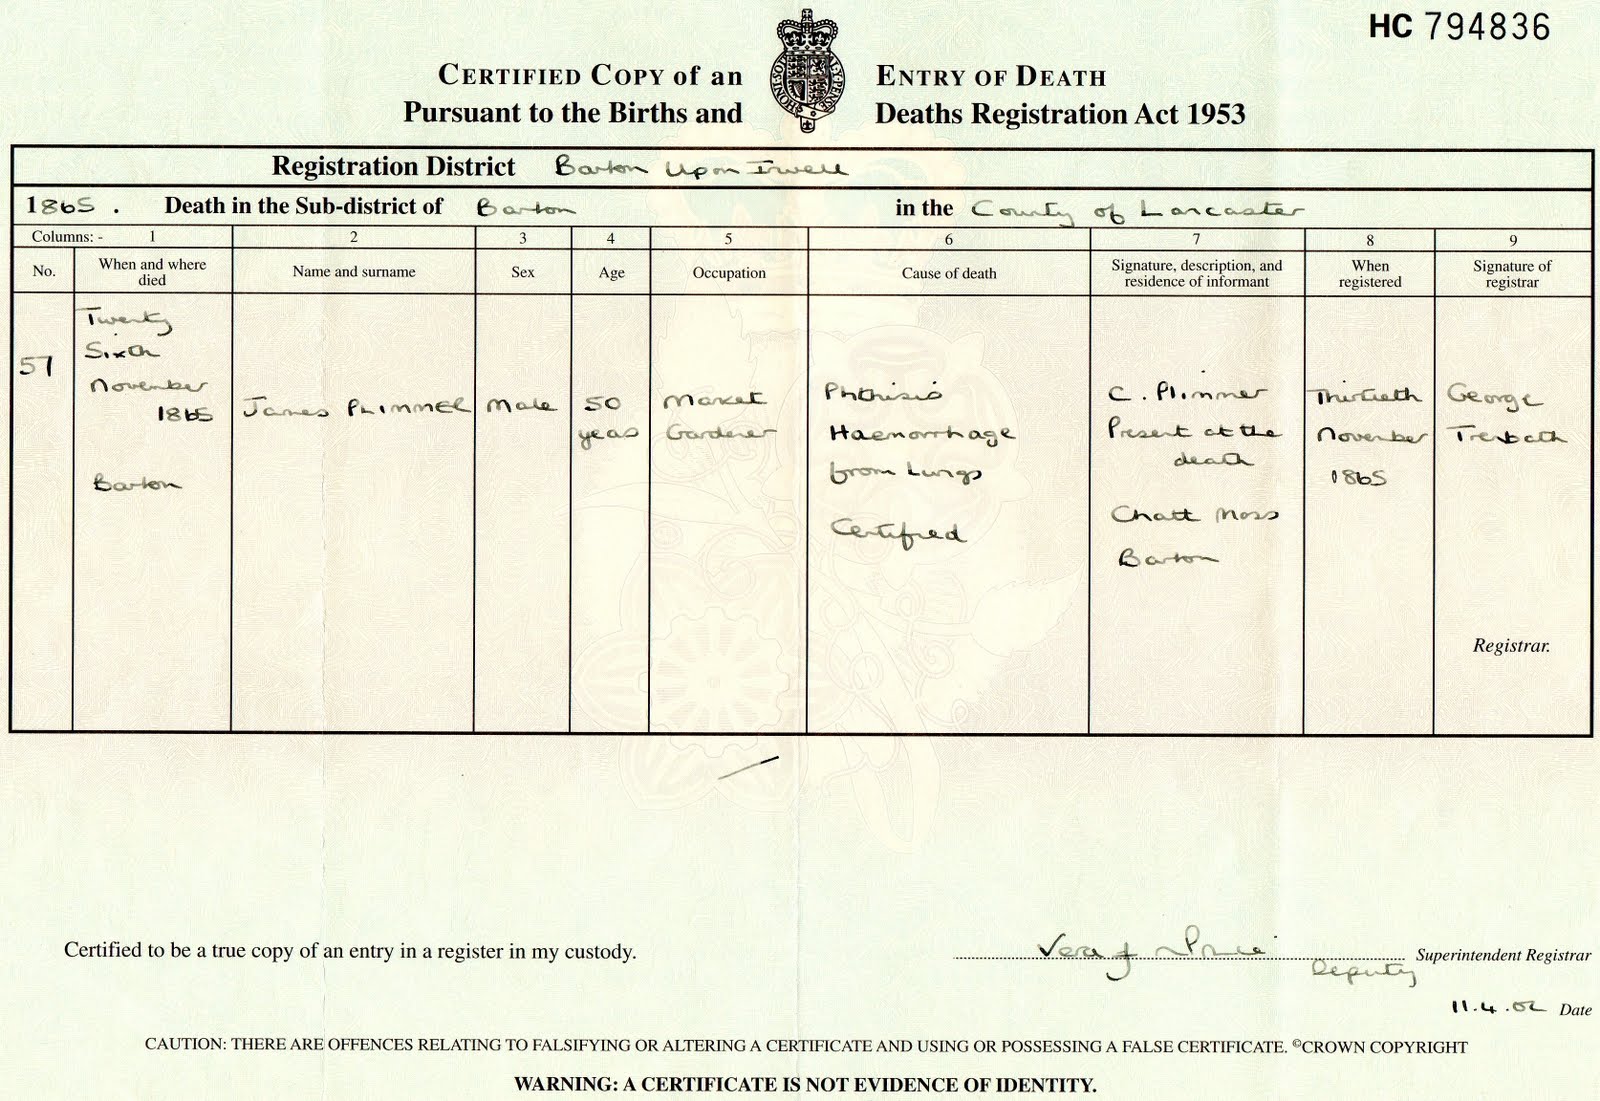 HC 794836
CERTIFIED COPY of an ENTRY OF DEATH
Pursuant to the Births and Deaths Registration Act 1953
HONI·SOIT
AL·Y·PENSE
Registration District Barton Upon Irwell
1865. Death in the Sub-district of Barton in the County of Lancaster
Columns: - 1 2 3 4 5 6 7 8 9
No. When and where died Name and surname Sex Age Occupation Cause of death Signature, description, and residence of informant When registered Signature of registrar
57
Twenty
Sixth
November
1865
Barton
James PLIMMER
Male
50
yeas
Market
Gardener
Phthisis
Haemorrhage
from Lungs
Certified
C. Plimmer
Present at the
death
Chatt Moss
Barton
Thirtieth
November
1865
George
Trenbath
Registrar.
Certified to be a true copy of an entry in a register in my custody.
Vera J Price Superintendent Registrar
Deputy
11.4.02 Date
CAUTION: THERE ARE OFFENCES RELATING TO FALSIFYING OR ALTERING A CERTIFICATE AND USING OR POSSESSING A FALSE CERTIFICATE. ©CROWN COPYRIGHT
WARNING: A CERTIFICATE IS NOT EVIDENCE OF IDENTITY.